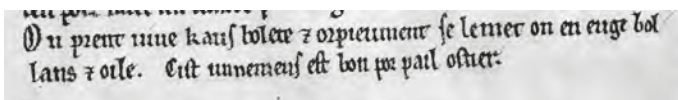 On prent viue kauſ bolete ⁊ orpieument ſe lemet on en euge bol
lans ⁊ oile. Ciſt unnemenſ eſt bon por pail oſter.